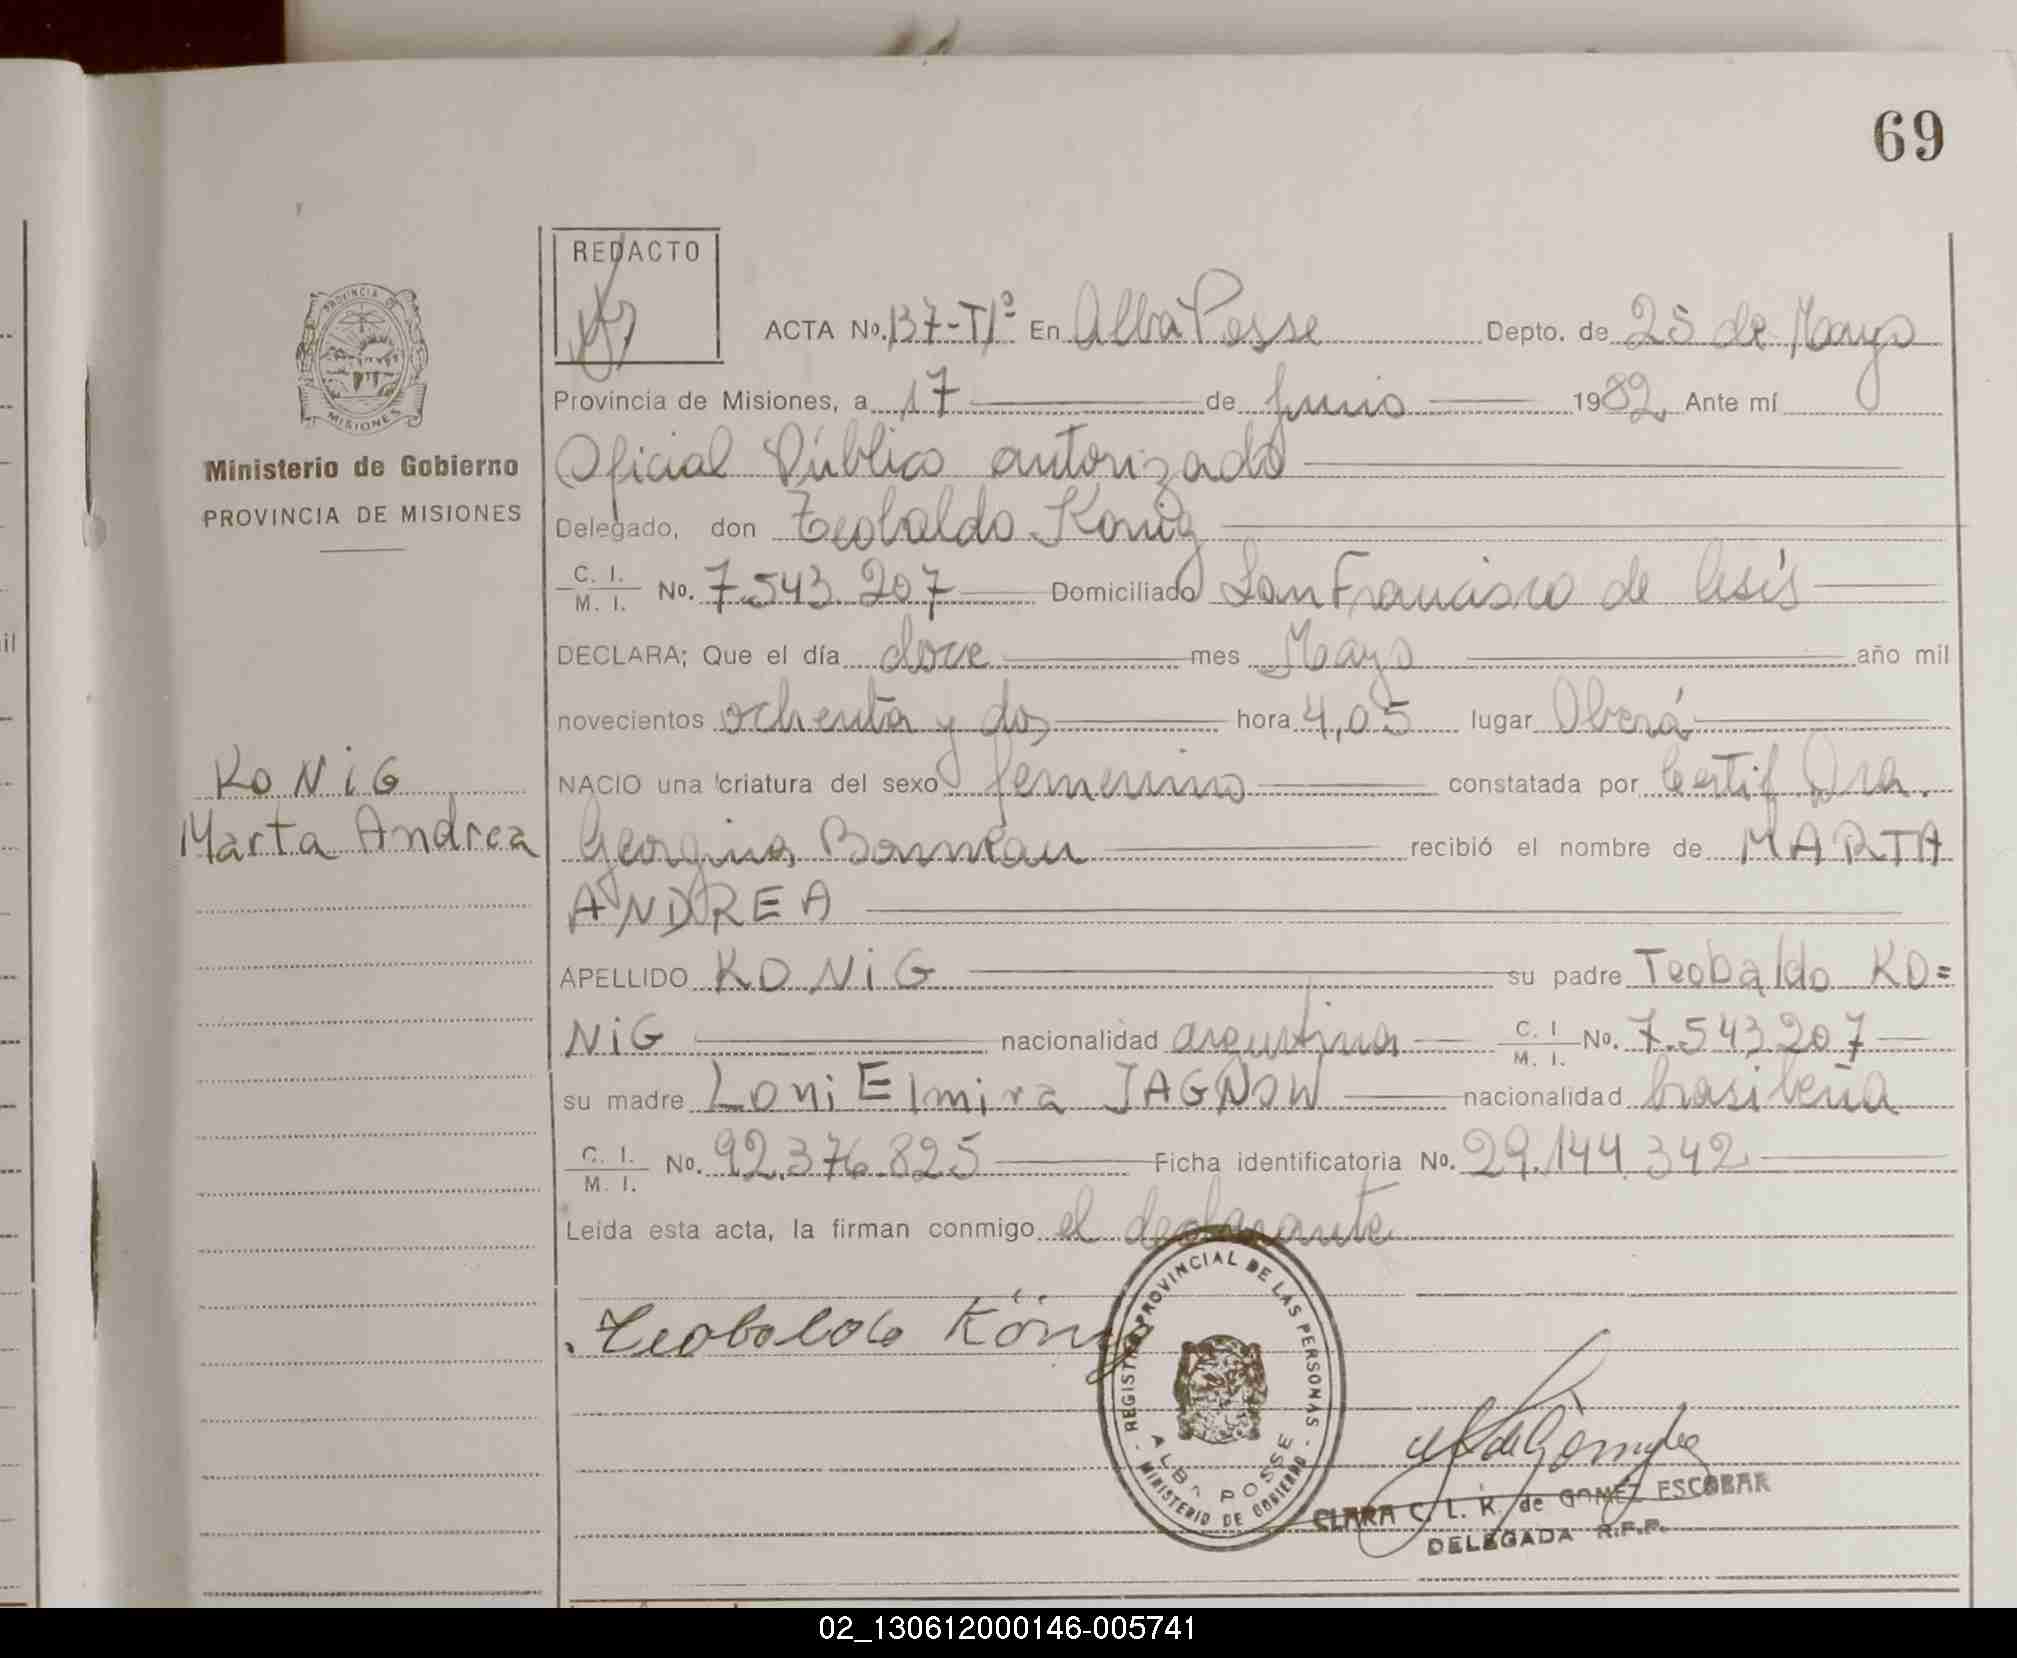 69
REDACTO
PROVINCIA DE
MISIONES
ACTA No. 137-Tº1º En Alba Posse Depto. de 25 de Mayo
Provincia de Misiones, a 17 de junio 1982 Ante mí
Ministerio de Gobierno
Oficial Público autorizado
PROVINCIA DE MISIONES
Delegado, don Teobaldo Konig
C. I. / M. I. No. 7.543.207 Domiciliado San Francisco de Asís
DECLARA; Que el día doce mes Mayo año mil
novecientos ochenta y dos hora 4,05 lugar Oberá
KONiG
NACIO una criatura del sexo femenino constatada por Certif Dra.
Marta Andrea
Georgina Bonneau recibió el nombre de MARTA
ANDREA
APELLIDO KONiG su padre Teobaldo KO=
NiG nacionalidad argentina C. I / M. I. No. 7.543.207
su madre Loni Elmira JAGNOW nacionalidad brasileña
C. I. / M. I. No. 92.376.825 Ficha identificatoria No. 29.144.342
Leída esta acta, la firman conmigo el declarante
Teobaldo König
REGISTRO PROVINCIAL DE LAS PERSONAS
ALBA POSSE
MINISTERIO DE GOBIERNO
CLARA C. L. K. de GOMEZ ESCOBAR
DELEGADA R.P.P.
il
02_130612000146-005741